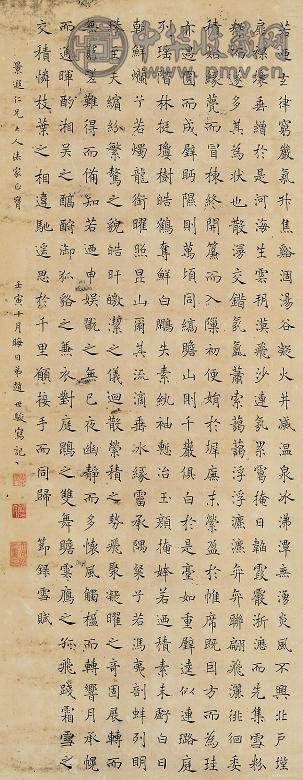 若迺玄律窮嚴氣升焦溪涸湯谷凝火井滅溫泉冰沸潭無湧炎風不興北戶墐
扉裸壤垂繒於是河海生雲朔漠飛沙連氛累靄掩日韜霞霰淅瀝而先集雪紛糅而
遂多其為狀也散漫交錯氛氳蕭索藹藹浮浮瀌瀌弈弈聯翩飛灑徘徊委
積始緣甍而冒棟終開簾而入隙初便娟於墀廡末縈盈於帷席既因方而為珪
亦遇圓而成璧眄隰則萬頃同縞瞻山則千巖俱白於是臺如重璧逵似連璐庭
列瑤階林挺瓊樹皓鶴奪鮮白鷴失素紈袖慚冶玉顏掩姱若迺積素未虧白日
朝鮮爛兮若燭龍銜曜照崑山爾其流滴垂冰緣霤承隅粲兮若馮夷剖蚌列明
珠至夫繽紛繁騖之貌皓皔曒潔之儀迴散縈積之勢飛聚凝曜之奇固展轉而
無窮嗟難得而備知若迺申娛翫之無已夜幽靜而多懷風觸楹而轉響月承幌
而通暉酌湘吳之醇酎御狐貉之兼衣對庭鵾之雙舞瞻雲鴈之孤飛踐霜雪之
交積憐枝葉之相違馳遙思於千里願接手而同歸 節錄雪賦
景遐仁兄大人法家正寶 壬寅十月晦日弟趙世駿寫記
中华收藏网
www.pmv.cn